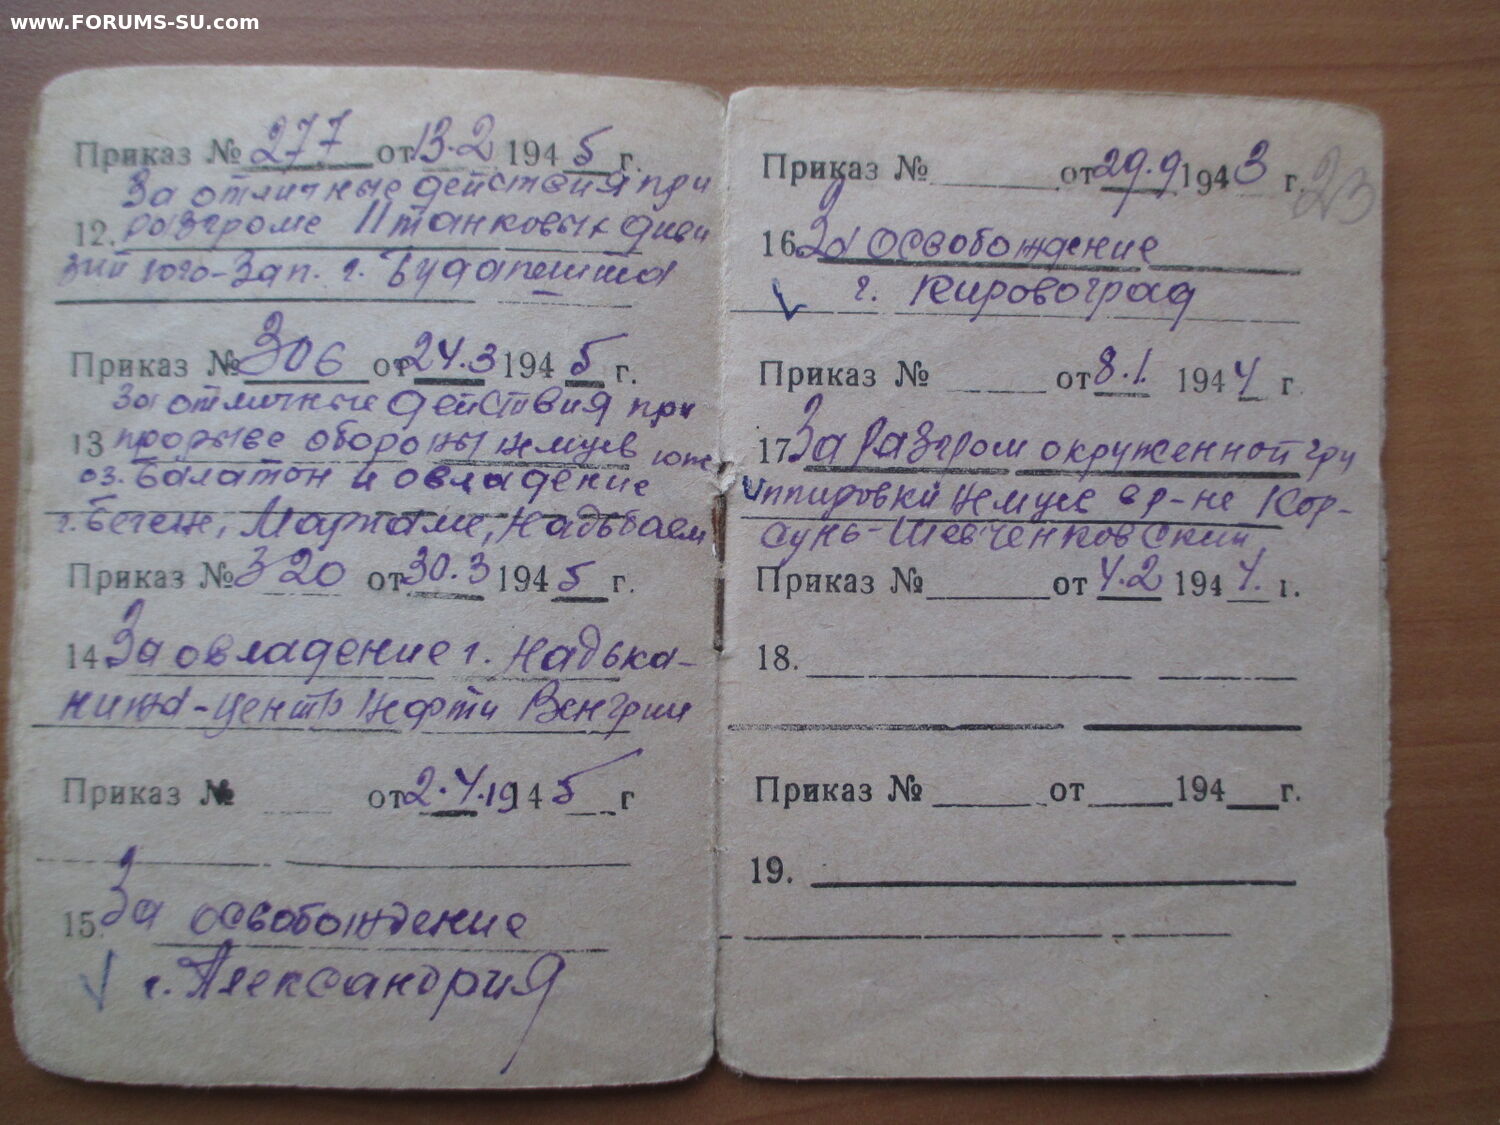 www.FORUMS-SU.com
Приказ № 277 от 13.2 1945 г.
За отличные действия при
12. разгроме 11 танковых диви
зий юго-зап. г. Будапешта
Приказ № 306 от 24.3 1945 г.
За отличные действия при
13 прорыве обороны немцев южн
оз. Балатон и овладение
г. Бегеж, Марцали, Надьбаем
Приказ № 320 от 30.3 1945 г.
14 За овладение г. Надька-
нижа-центр Нефти Венгрии
Приказ № от 2.4.1945 г
15. За освобождение
г. Александрия
Приказ № от 29.9 1943 г.
23
16 За освобождение
г. Кировоград
Приказ № от 8.1. 1944 г
17 За разгром окруженной гру
ппировки немцев в р-не Кор-
сунь-Шевченковский
Приказ № от 4.2 1944. г.
18.
Приказ № от 194 г.
19.